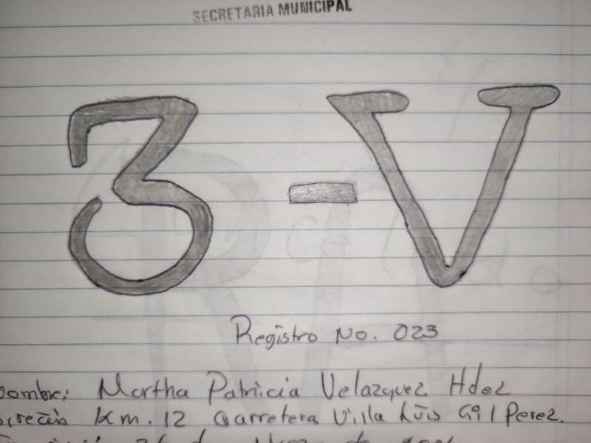 SECRETARIA MUNICIPAL
3-V
Registro No. 023
ombre: Martha Patricia Velazquez Hdez
Km. 12 Carretera Villa Luis Gil Perez.